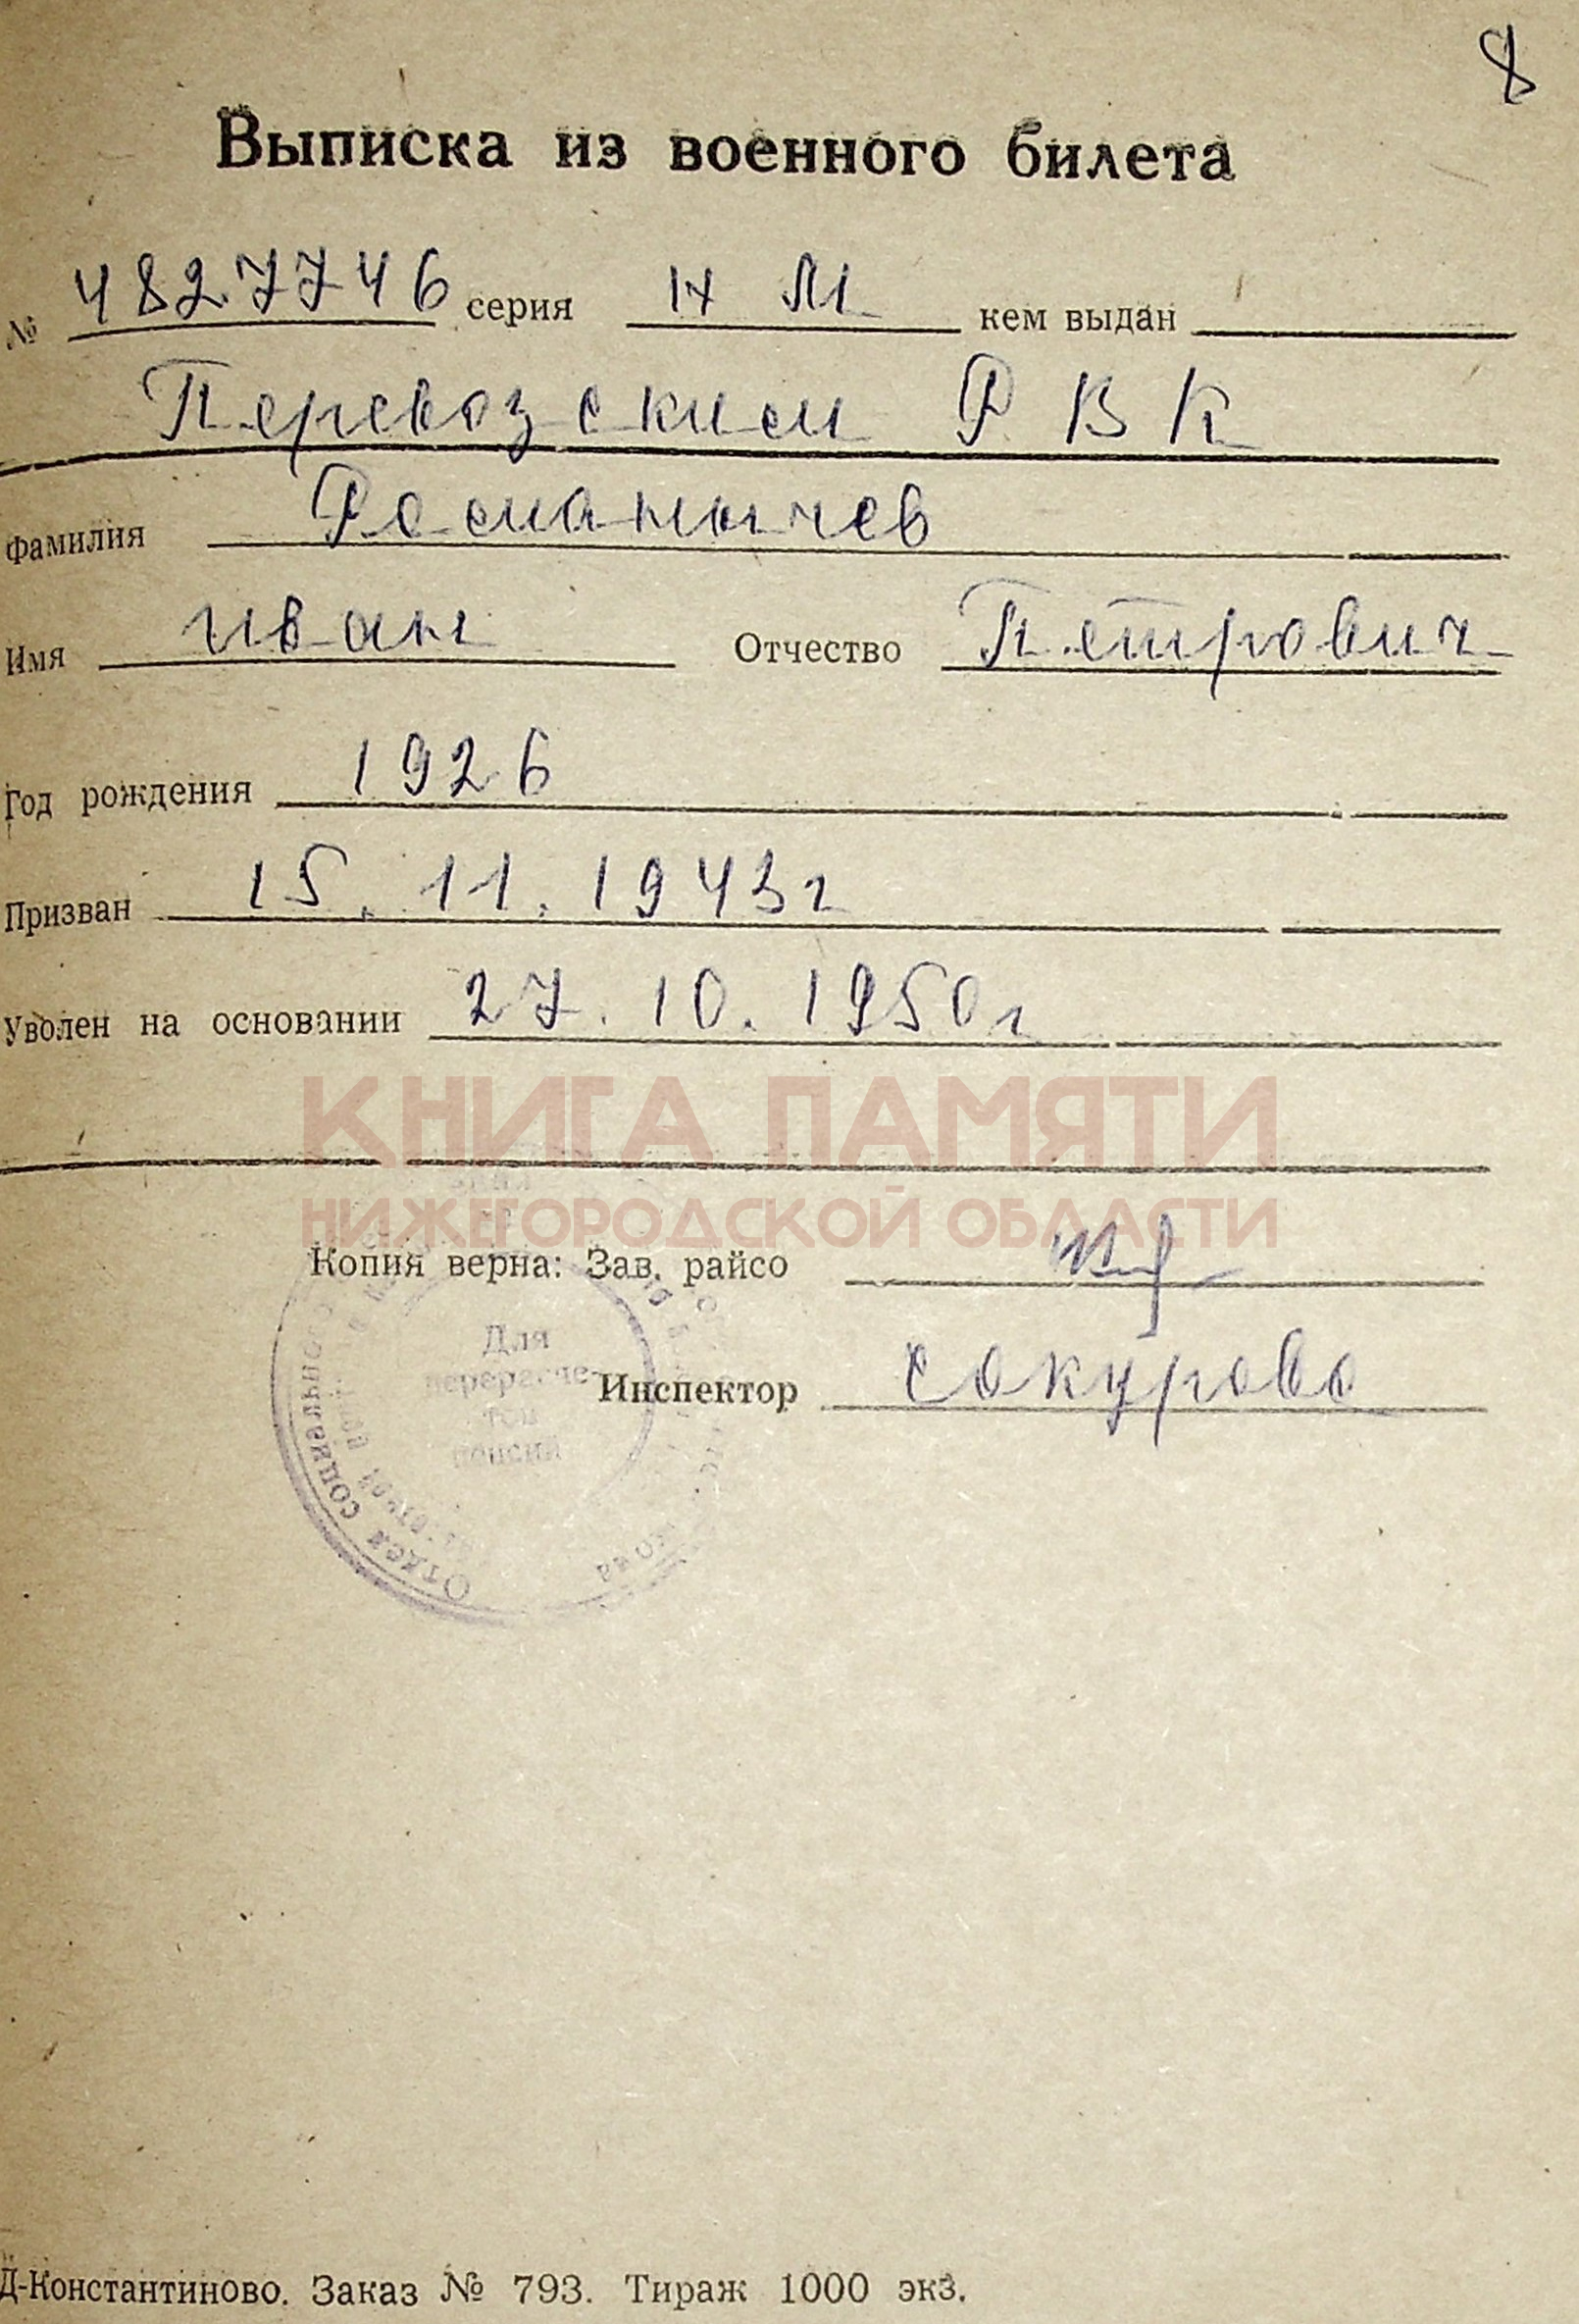 8
Выписка из военного билета
№ 4827746 серия НМ кем выдан
Перевозским РВК
Фамилия Романычев
Имя иван Отчество Петрович
Год рождения 1926
Призван 15.11.1943г
Уволен на основании 27.10.1950г
КНИГА ПАМЯТИ
НИЖЕГОРОДСКОЙ ОБЛАСТИ
Копия верна: Зав. райсо
Инспектор Сокурова
Для
перерасче-
тов
пенсий
Отдел социального
Д-Константиново. Заказ № 793. Тираж 1000 экз.